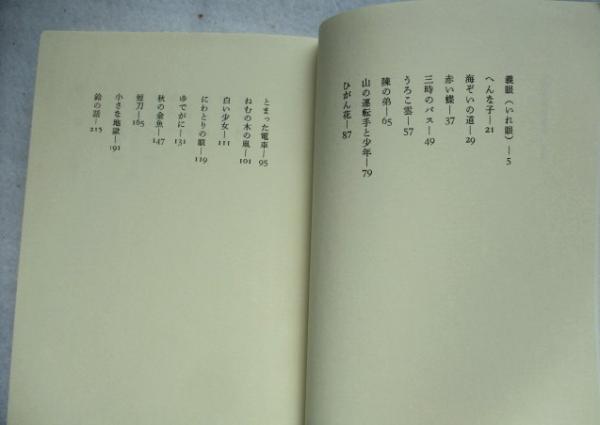 義眼(いれ眼)—5
へんな子—21
海ぞいの道—29
赤い蝶—37
三時のバス—49
うろこ雲—57
隣の弟—65
山の運転手と少年—79
ひがん花—87
とまった電車—95
ねむの木の風—101
白い少女—111
にわとりの眼—119
ゆでがに—131
秋の金魚—147
短刀—165
小さな地獄—191
鈴の話—215